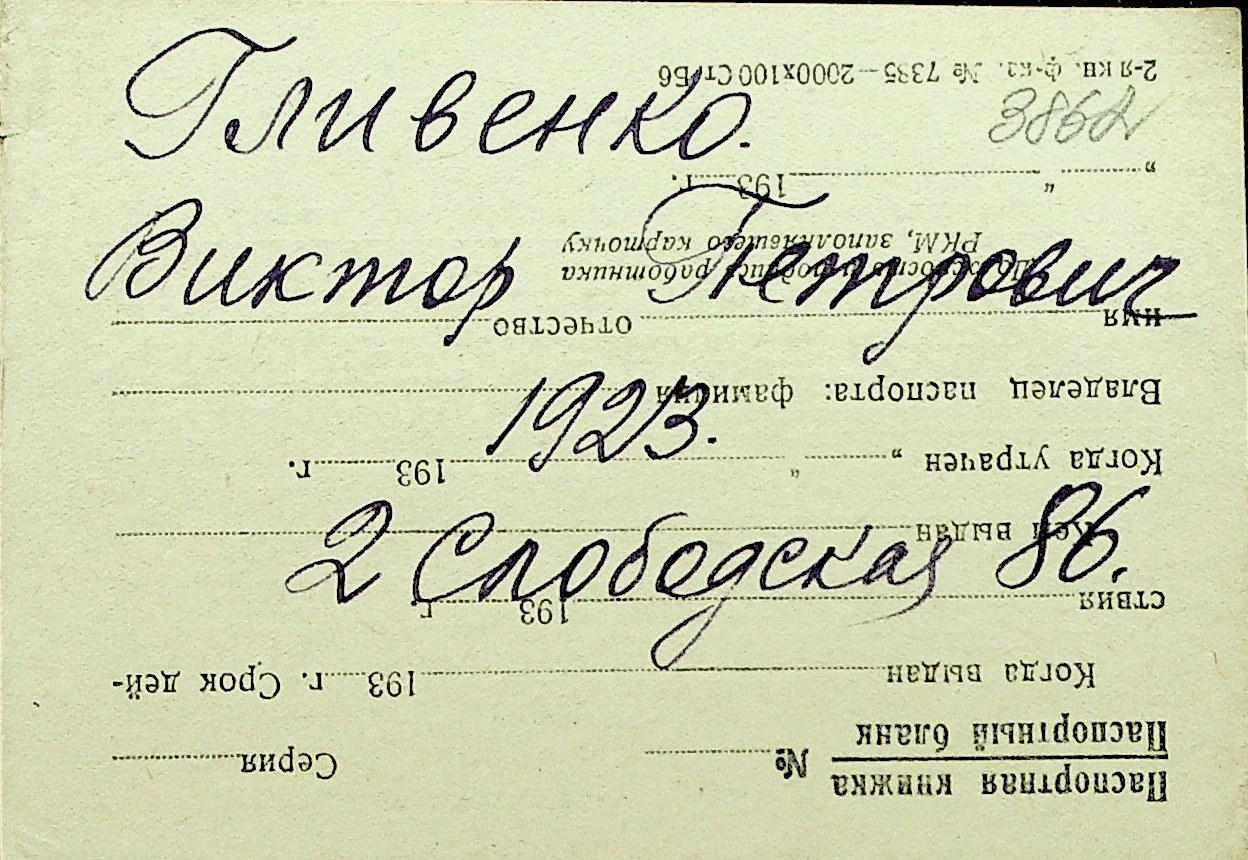 Гливенко.
Виктор Петрович
1923.
2 Слободская 86.
3862
Паспортная книжка
Паспортный бланк № Серия
Когда выдан 193 г. Срок дей-
ствия 193 г.
Кем выдан
Когда утрачен „ “ 193 г.
Владелец паспорта: фамилия
имя отчество
Должность и подпись работника
РКМ, заполнявшего карточку
„ “ 193 г.
2-я кн. ф-ка. № 7385—2000х100 Ст. Б6